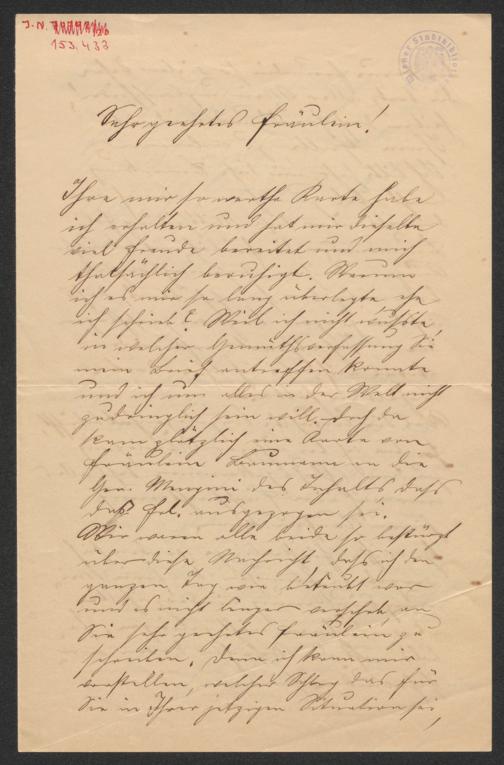 J.N.
153.433
Wiener Stadtbibliothek
Sehr geehrtes Fräulein!
Ihre mir so werthe Karte habe
ich erhalten und hat mir dieselbe
viel Freude bereitet und mich
thatsächlich beruhigt. Warum
ich es mir so lang überlegte, ehe
ich schrieb? Weil ich nicht wußte,
in welcher Gemüthsverfassung Sie
mein Brief antreffen konnte
und ich um alles in der Welt nicht
zudringlich sein will. Doch da
kam plötzlich eine Karte von
Fräulein Baumann an die
des Inhalts dass
das Frl. ausgezogen sei.
Wir waren alle beide so bestürzt
über diese Nachricht, dass ich den
ganzen Tag wie betäubt war
und es nicht länger an
Sie sehr geehrtes Fräulein zu
schreiben. Denn ich kann mir
vorstellen, welcher Schlag das für
Sie in Ihrer jetzigen Situation sei,